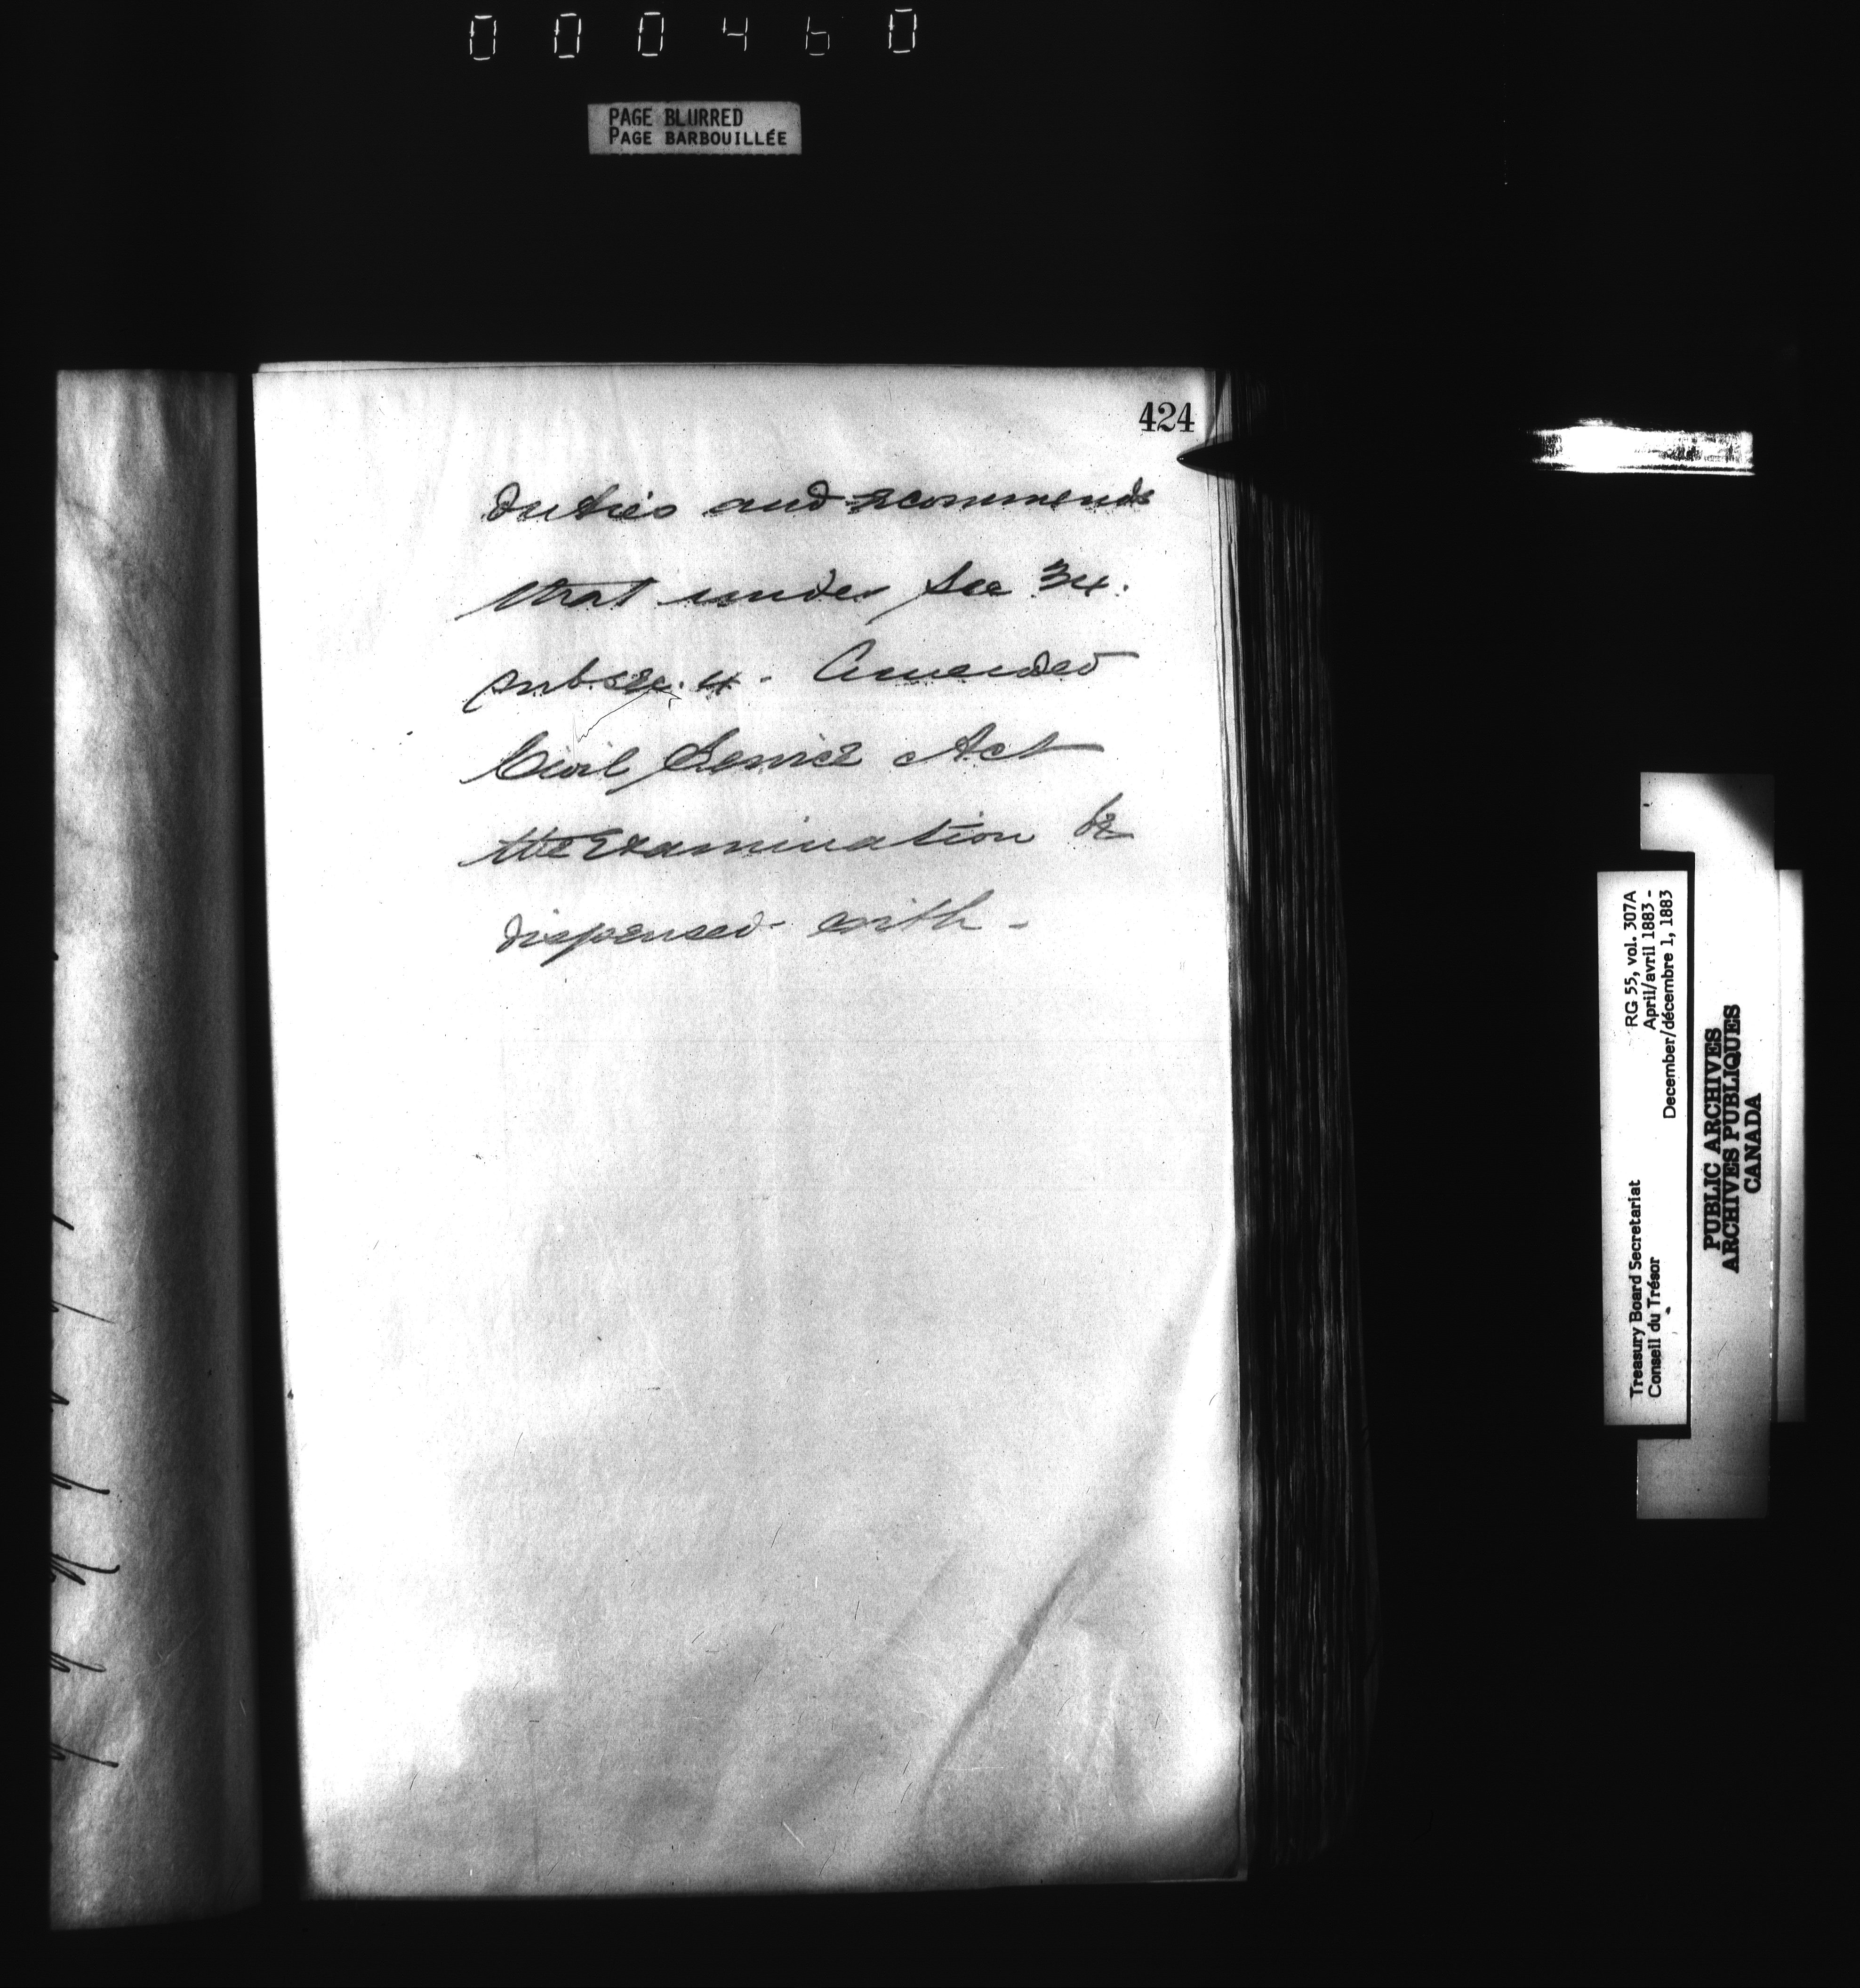 000460
PAGE BLURRED
PAGE BARBOUILLÉE
424
duties and recommends
that under Sec 34.
subsec. 4. Amended
Civil Service Act
the Examination be
dispensed with -
Treasury Board Secretariat RG 55, vol. 307A
Conseil du Trésor April/avril 1883 -
December/décembre 1, 1883
PUBLIC ARCHIVES
ARCHIVES PUBLIQUES
CANADA